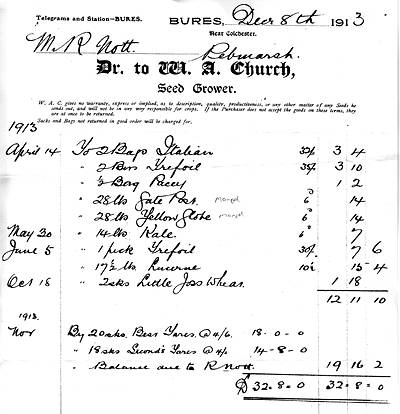 Telegrams and Station—BURES. BURES, Decr 8th 1913
Near Colchester.
Mr R Nott Pebmarsh.
Dr. to W. A. Church,
Seed Grower.
W. A. C. gives no warranty, express or implied, as to description, quality, productiveness, or any other matter of any Seeds he
sends out, and will not be in any way responsible for crops. If the Purchaser does not accept the goods on these terms, they
are at once to be returned.
Sacks and Bags not returned in good order will be charged for.
1913
April 14 To 2 Bags Italian 32/- 3 4
" 2 Bus Trefoil 35/- 3 10
" ½ Bag Pacey 1 2
" 28 lbs Gate Post mangel 6d 14
" 28 lbs Yellow Globe mangel 6d 14
May 30 " 14 lbs Kale 6d 7
June 5 " 1 peck Trefoil 30/- 7 6
" 17½ lbs Lucerne 10½ 15 4
Oct 18 " 2 sks Little Joss Wheat 1 18
12 11 10
1913
Nov By 20 sks. Best Tares @ 4/6. 18-0-0
" 18 sks Seconds Tares @ 4/- 14-8-0
" Balance due to R Nott 19 16 2
£32.8.0 32.8.0